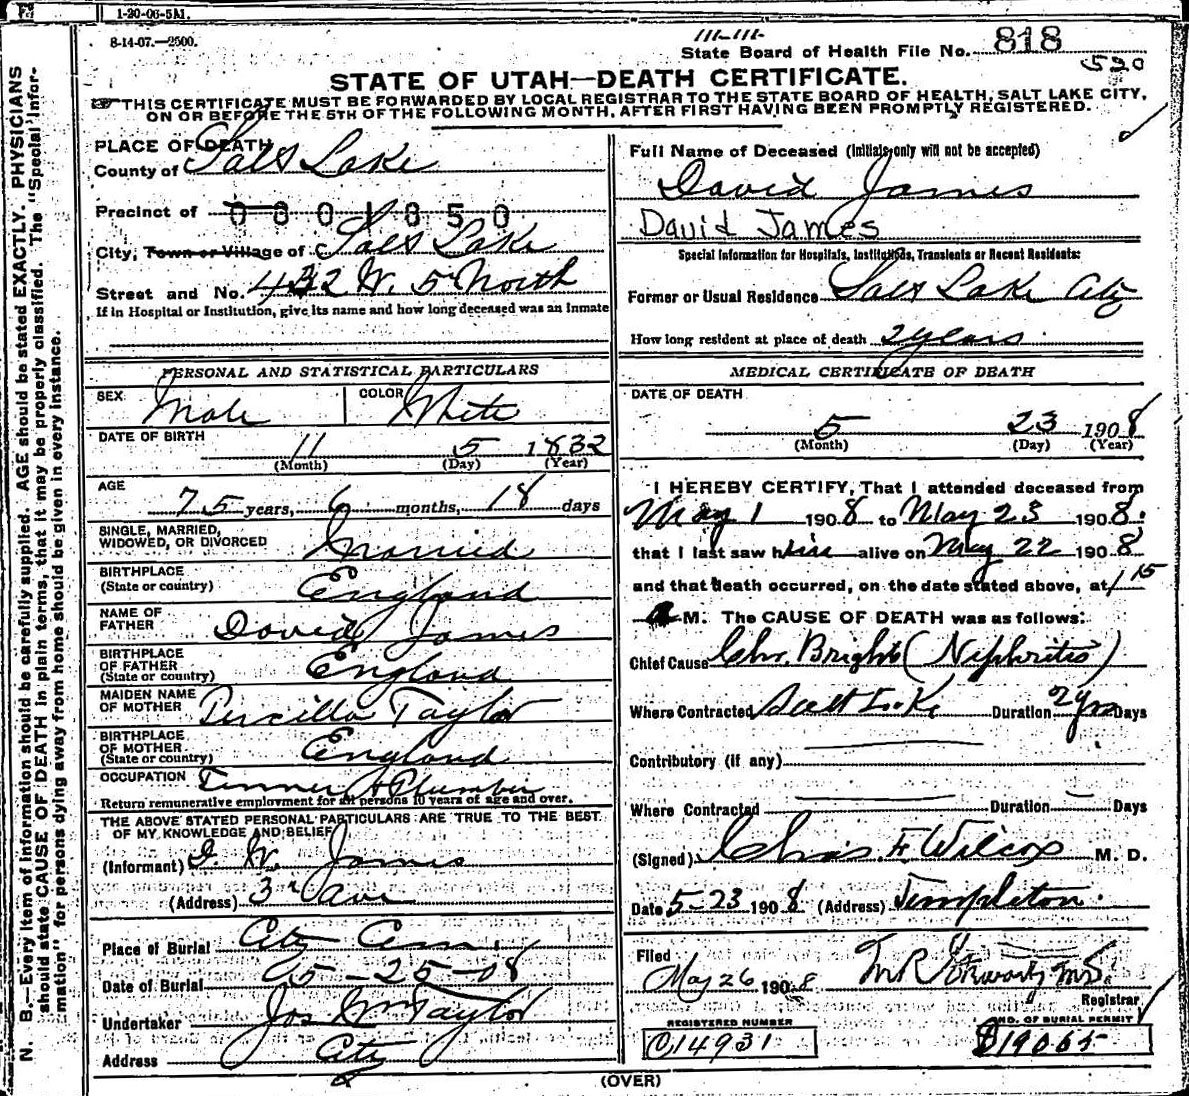 1-20-06-5M.
8-14-07.—2500.
State Board of Health File No. 818
520
STATE OF UTAH—DEATH CERTIFICATE.
THIS CERTIFICATE MUST BE FORWARDED BY LOCAL REGISTRAR TO THE STATE BOARD OF HEALTH, SALT LAKE CITY,
ON OR BEFORE THE 5TH OF THE FOLLOWING MONTH, AFTER FIRST HAVING BEEN PROMPTLY REGISTERED.
N. B.—Every item of information should be carefully supplied. AGE should be stated EXACTLY. PHYSICIANS
should state CAUSE OF DEATH in plain terms, that it may be properly classified. The "Special Infor-
mation" for persons dying away from home should be given in every instance.
PLACE OF DEATH
County of Salt Lake
Precinct of 0801850
City, Town or Village of Salt Lake
Street and No. 432 W. 5 North
If in Hospital or Institution, give its name and how long deceased was an inmate
PERSONAL AND STATISTICAL PARTICULARS
SEX Male COLOR White
DATE OF BIRTH 11 5 1832
(Month) (Day) (Year)
AGE
75 years, 6 months, 18 days
SINGLE, MARRIED,
WIDOWED, OR DIVORCED Married
BIRTHPLACE
(State or country) England
NAME OF
FATHER David James
BIRTHPLACE
OF FATHER
(State or country) England
MAIDEN NAME
OF MOTHER Percilla Taylor
BIRTHPLACE
OF MOTHER
(State or country) England
OCCUPATION Tinner & Plumber
Return remunerative employment for all persons 10 years of age and over.
THE ABOVE STATED PERSONAL PARTICULARS ARE TRUE TO THE BEST
OF MY KNOWLEDGE AND BELIEF
(Informant) D. W. James
(Address) 3rd Ave
Place of Burial City Cem.
Date of Burial 5-25-08
Undertaker Jos Wm Taylor
Address City
Full Name of Deceased (Initials only will not be accepted)
David James
David James
Special Information for Hospitals, Institutions, Transients or Recent Residents:
Former or Usual Residence Salt Lake City
How long resident at place of death 2 years
MEDICAL CERTIFICATE OF DEATH
DATE OF DEATH
5 23 1908
(Month) (Day) (Year)
I HEREBY CERTIFY, That I attended deceased from
May 1 1908 to May 23 1908.
that I last saw him alive on May 22 1908,
and that death occurred, on the date stated above, at 1 15
A M. The CAUSE OF DEATH was as follows:
Chief Cause Chr. Brights (Nephritis)
Where Contracted Salt Lake Duration 2 yrs Days
Contributory (if any)
Where Contracted Duration Days
(Signed) Chas. F. Wilcox M. D.
Date 5-23 1908 (Address) Templeton.
Filed
May 26 1908
Registrar
REGISTERED NUMBER
014931
NO. OF BURIAL PERMIT
B19065
(OVER)